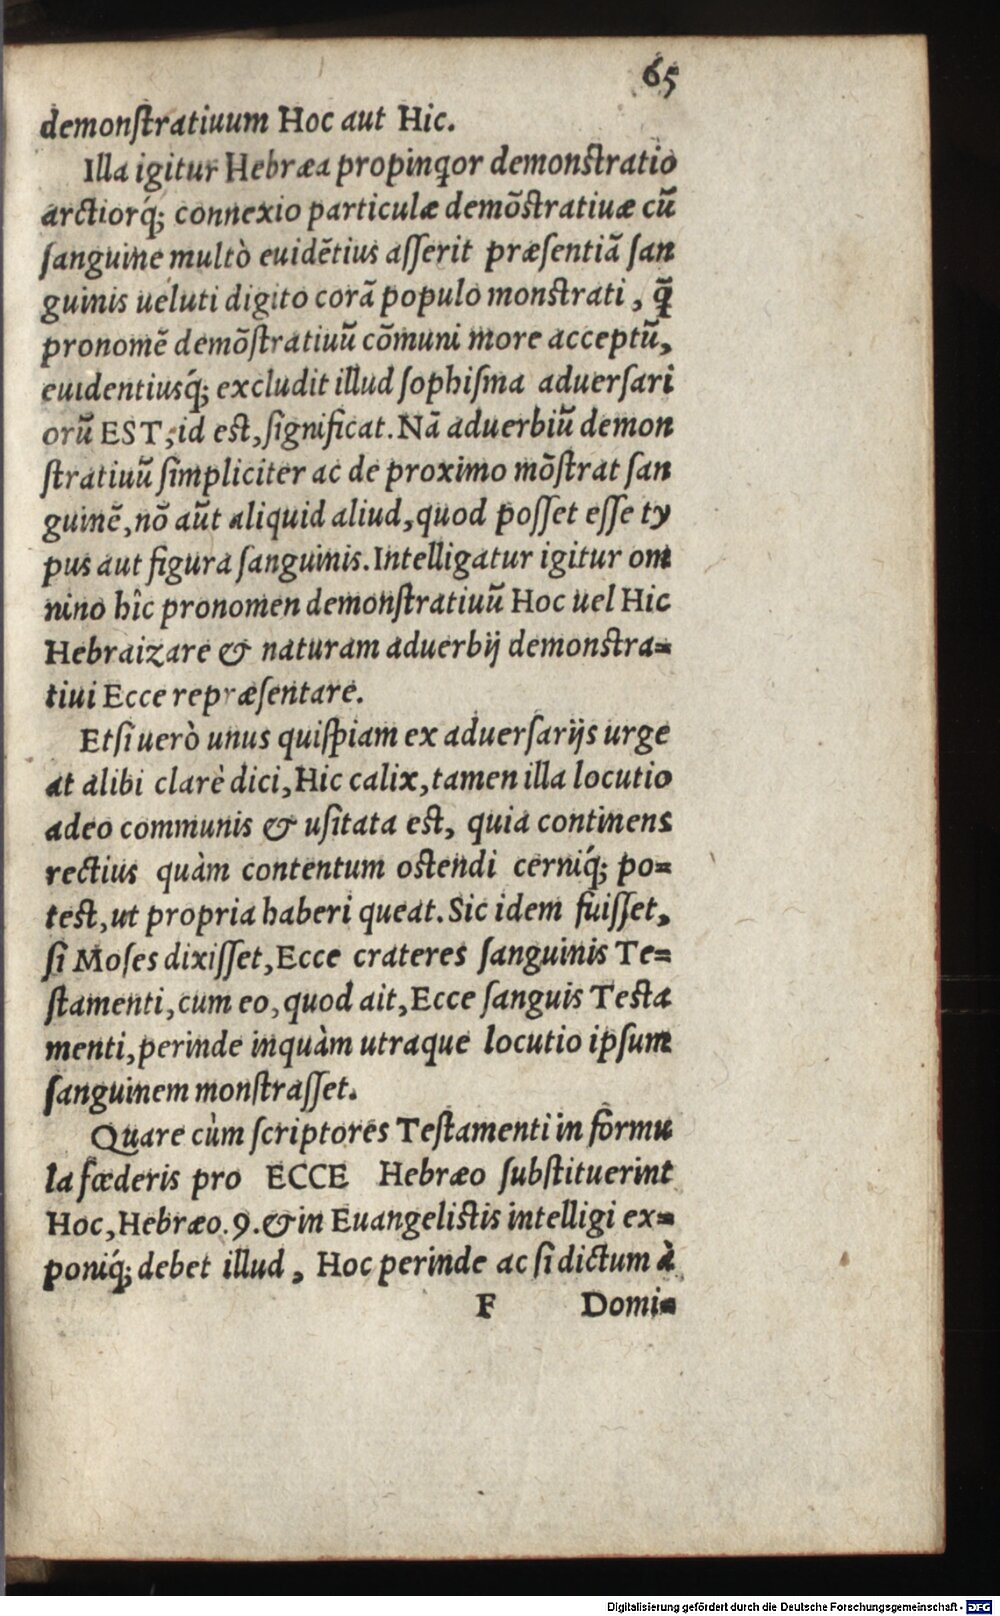 65
demonſtratiuum Hoc aut Hic.
Illa igitur Hebræa propinqor demonſtratio
arctiorq́; connexio particulæ demõſtratiuæ cũ
ſanguine multò euidẽtius aſſerit præſentiã ſan
guinis ueluti digito corã populo monſtrati, q̃
pronomẽ demõſtratiuũ cõmuni more acceptũ,
euidentiusq́; excludit illud ſophiſma aduerſari
orũ EST, id eſt, ſignificat. Nã aduerbiũ demon
ſtratiuũ ſimpliciter ac de proximo mõſtrat ſan
guinẽ, nõ aũt aliquid aliud, quod poſſet eſſe ty
pus aut figura ſanguinis. Intelligatur igitur om
nino hîc pronomen demonſtratiuũ Hoc uel Hic
Hebraizare & naturam aduerbij demonſtra=
tiui Ecce repræſentare.
Etſi uerò unus quiſpiam ex aduerſarijs urge
at alibi clarè dici, Hic calix, tamen illa locutio
adeo communis & uſitata eſt, quia continens
rectius quàm contentum oſtendi cerniq́; po=
teſt, ut propria haberi queat. Sic idem fuiſſet,
ſi Moſes dixiſſet, Ecce crateres ſanguinis Te=
ſtamenti, cum eo, quod ait, Ecce ſanguis Teſta
menti, perinde inquàm utraque locutio ipſum
ſanguinem monſtraſſet.
Quare cùm ſcriptores Teſtamenti in formu
la fœderis pro ECCE Hebræo ſubſtituerint
Hoc, Hebræo. 9. & in Euangeliſtis intelligi ex=
poniq́; debet illud, Hoc perinde ac ſi dictum à
F Domi=
Digitalisierung gefördert durch die Deutsche Forschungsgemeinschaft - DFG